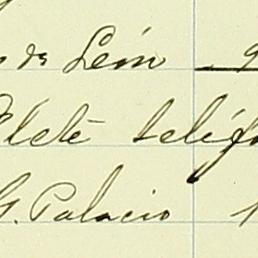 de León
Flete teléfo
G. Palacio 1